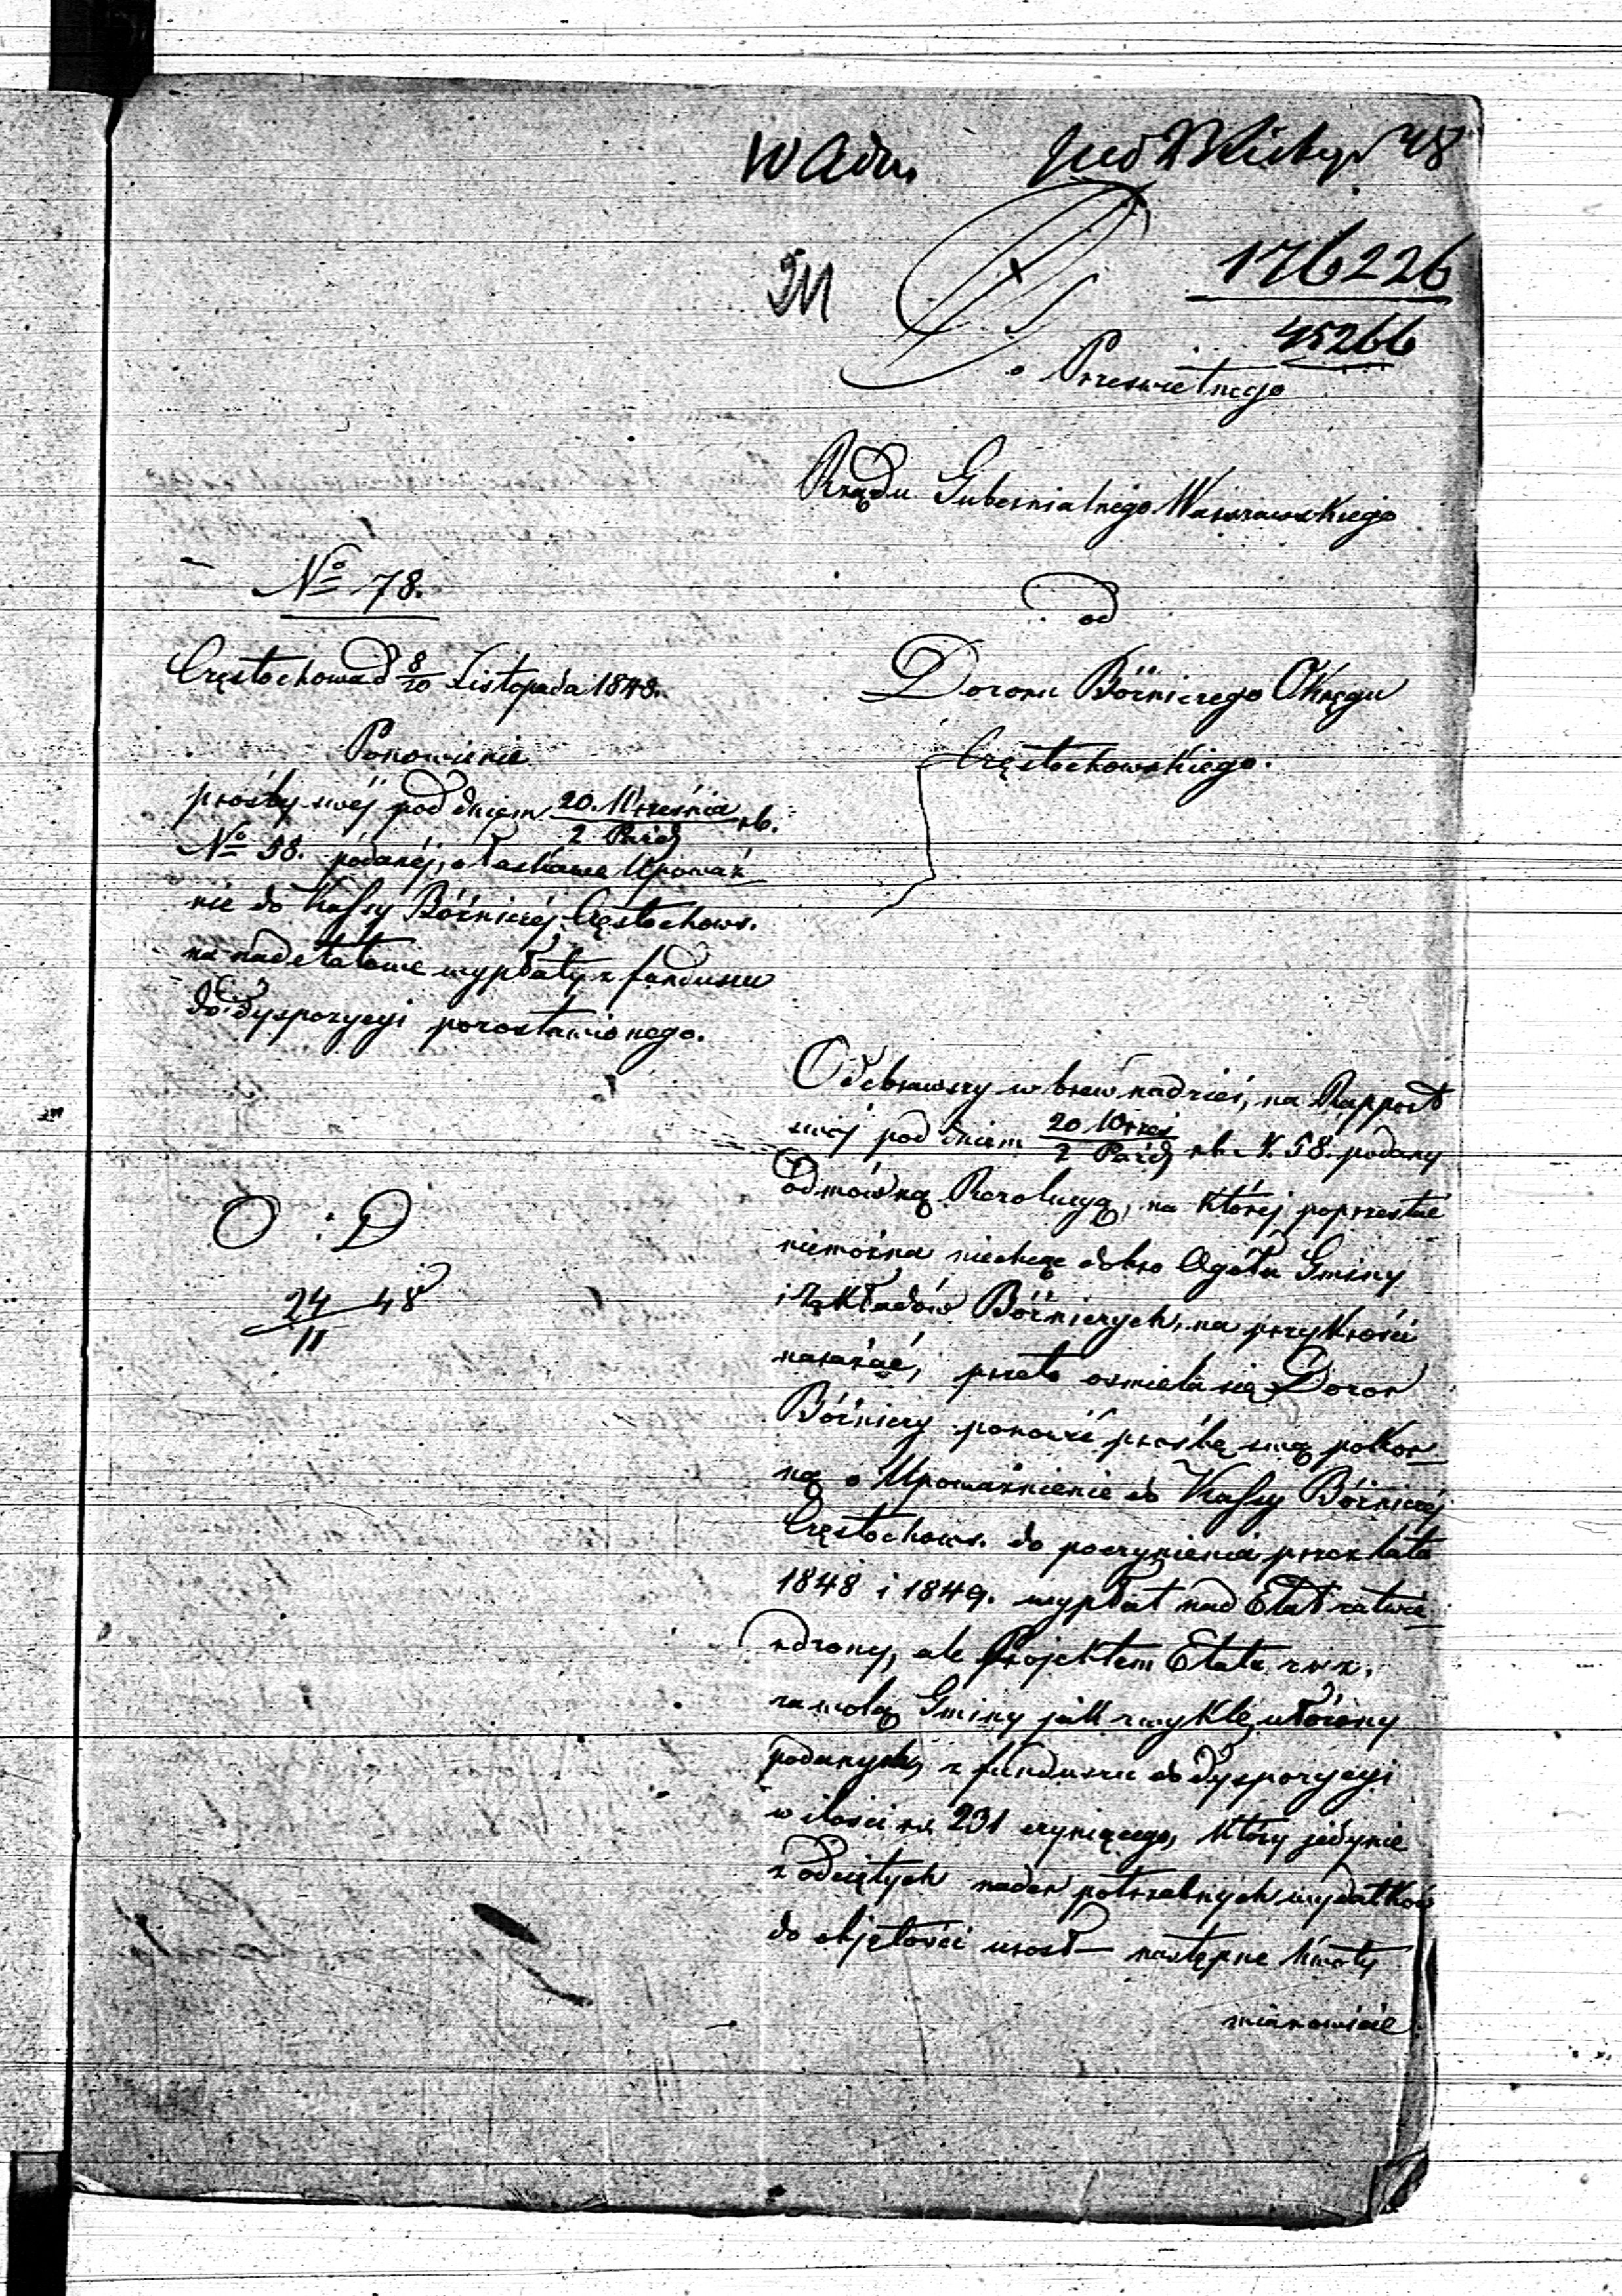 W Adm.
48
176226
45266
Do Prześwietnego
Rządu Gubernialnego Warszawskiego
od
Dozoru Bóżniczego Okręgu
Częstochowskiego.
No 78.
Częstochowa d 8/20 Listopada 1848.
Ponowienie
prośby swéj pod dniem 20. Września / 2 Paźd rb.
No 58. podanéj, o łaskawe Upoważ
nie do Kassy Bóżniczéj Częstochows.
na nadetatowe wypłaty z funduszu
do dyspozycyi pozostawionego.
O : D
24/11 48
Odebrawszy w brew nadziei, na Rapport
swéj pod dniem 20 Wrześ / 2 Paźd rb. N. 58. podany
Odmówną Rezolucyą, na któréj poprzestać
niemożna niechcąc dobro Ogółu Gminy
i Zakładów Bóżniczych, na przykrości
narażać, przeto ośmiela się Dozor
Bóżniczy ponowić prośbę swą pokor
ną o Upoważnienie do Kassy Bóżniczéj
Częstochows. do poczynienia przez lata
1848 i 1849. wypłat nad Etat zatwie
rdzony, ale Projektem Etatu
za wolą Gminy jak zwykle ułożony
podanych, z funduszu do dyspozycyi
w ilości rs 231 czyniącego, który jedynie
z odciętych nader potrzebnych wydatków
do objętości urosł — następne kwoty
mianowicie